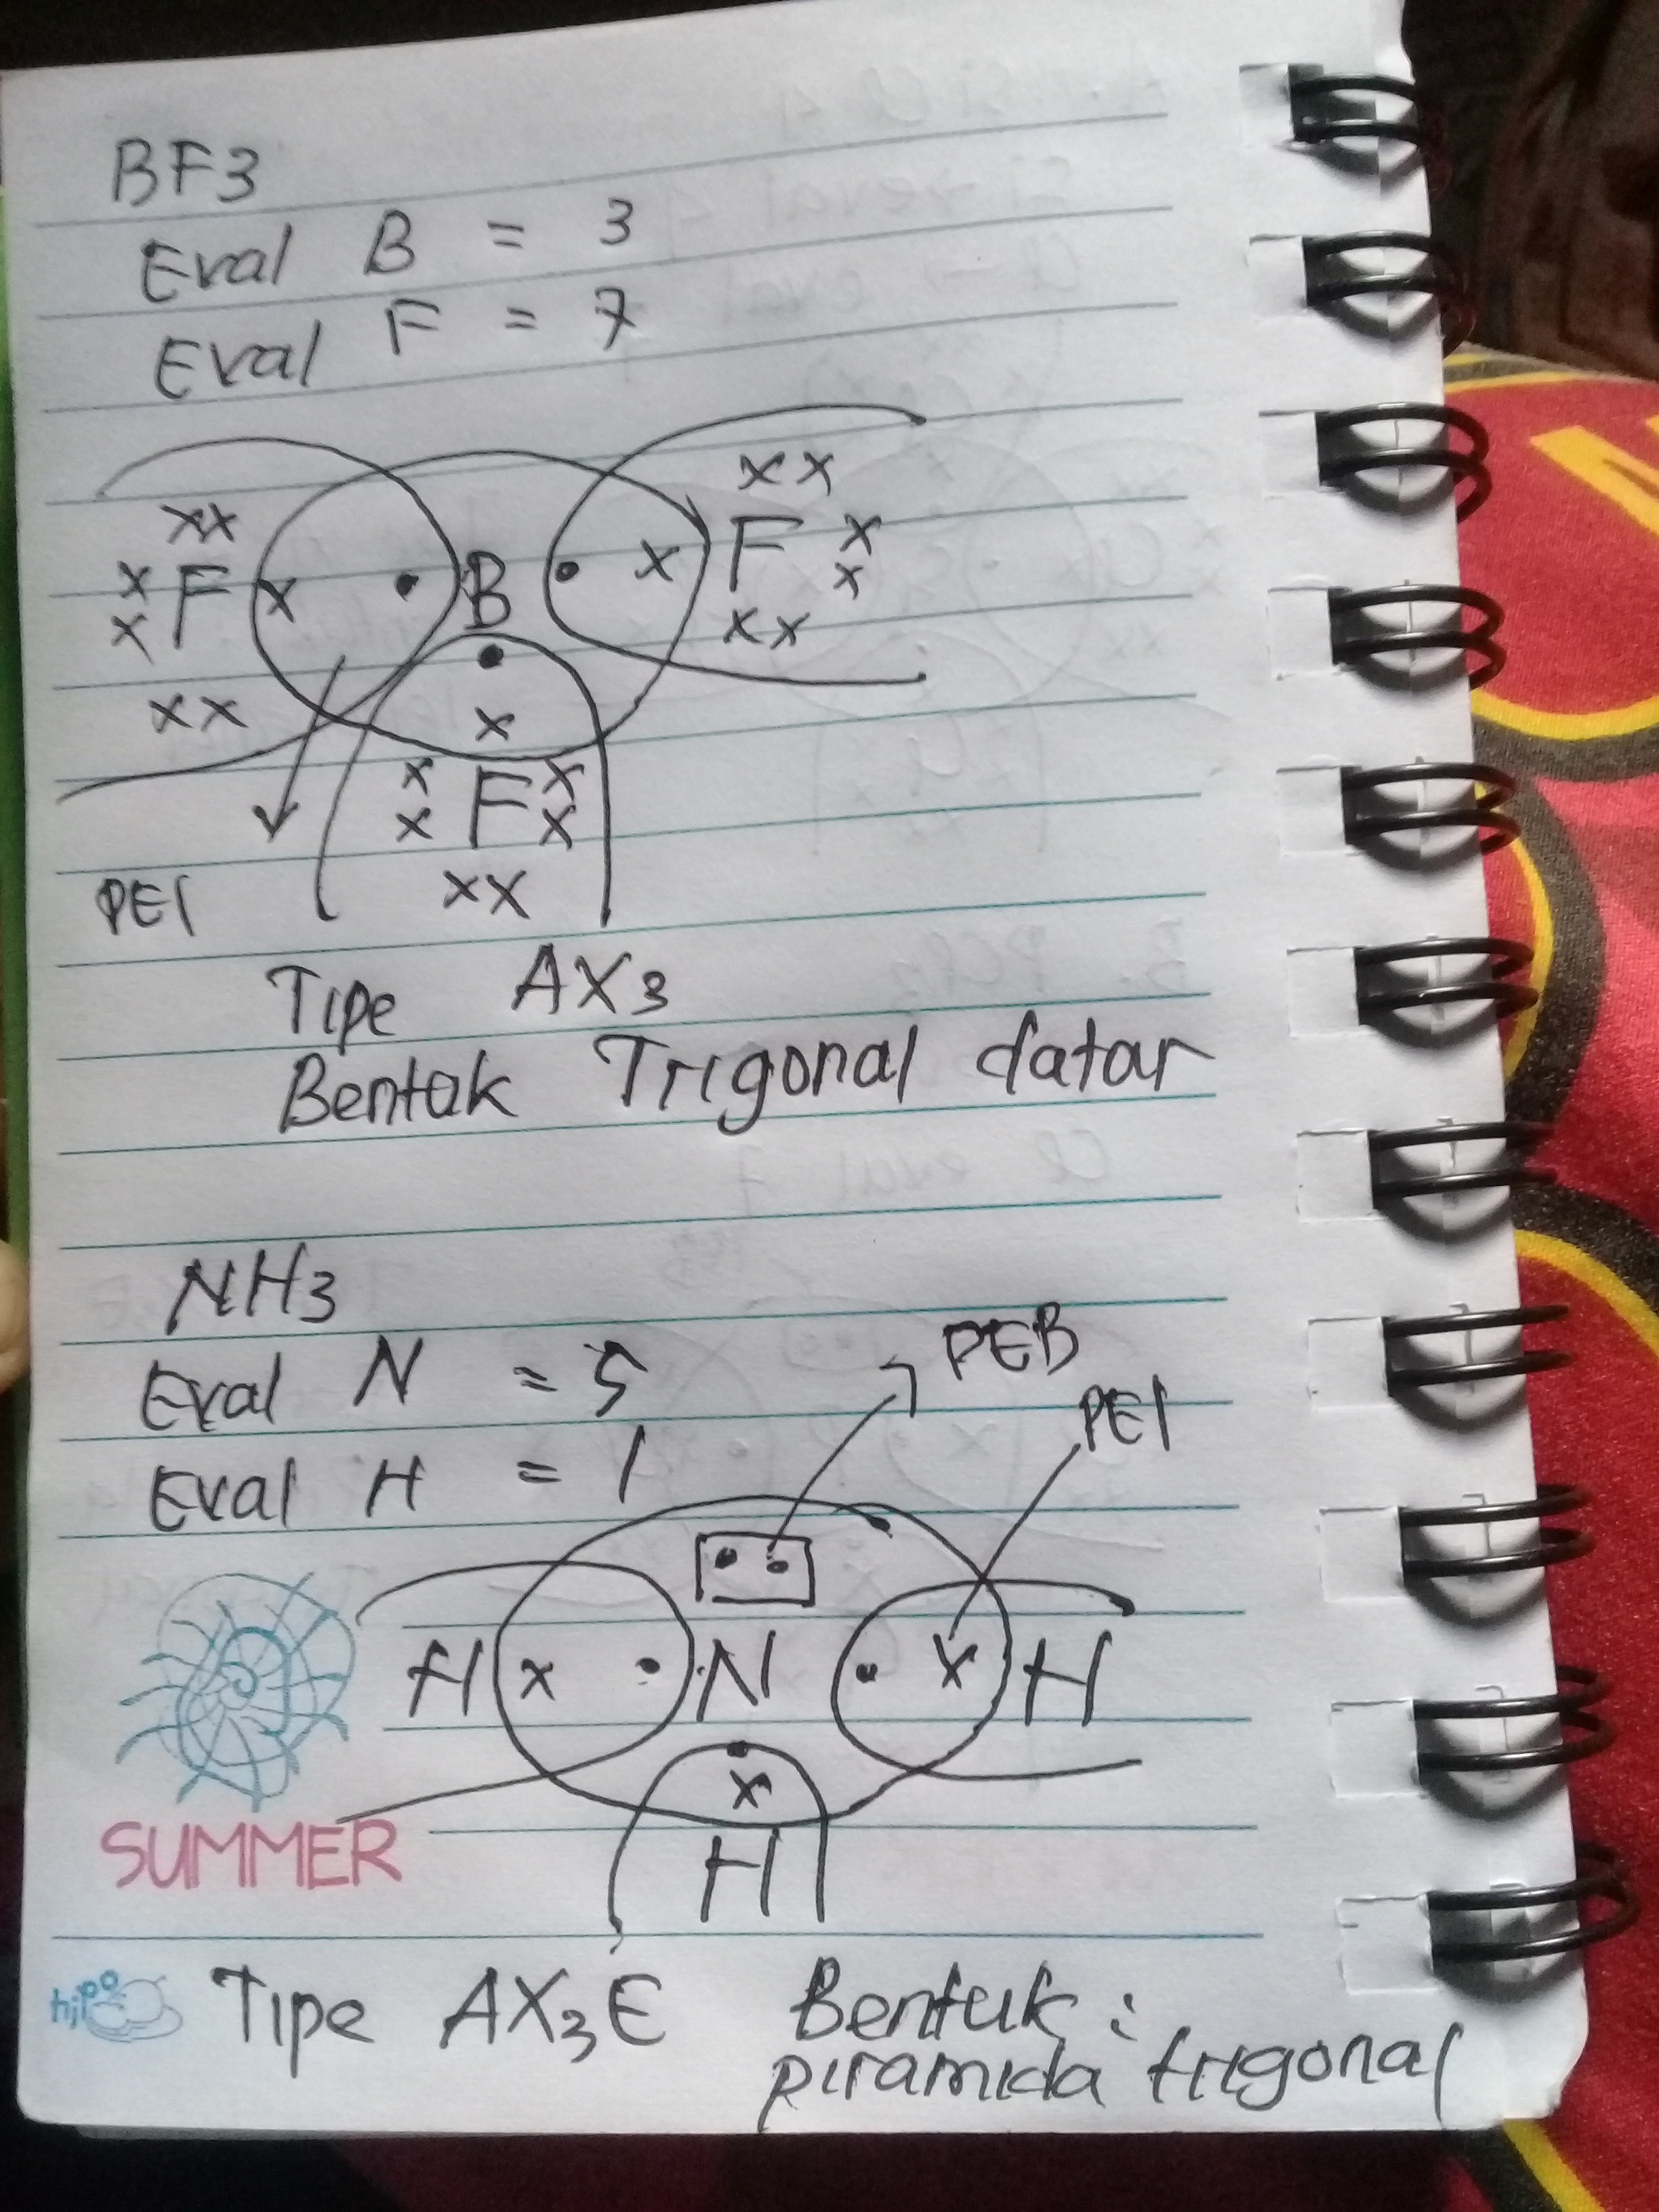 BF3
Eval B = 3
Eval F = 7
xx xx
x F x • B • x F x
x x
xx • xx
x
x F x
x x
PEI xx
Tipe AX3
Bentuk Trigonal datar
NH3
Eval N = 5 PEB
Eval H = 1 PEI
• •
H x • N • x H
•
x
SUMMER
H
hipo
Tipe AX3E Bentuk :
piramida trigonal